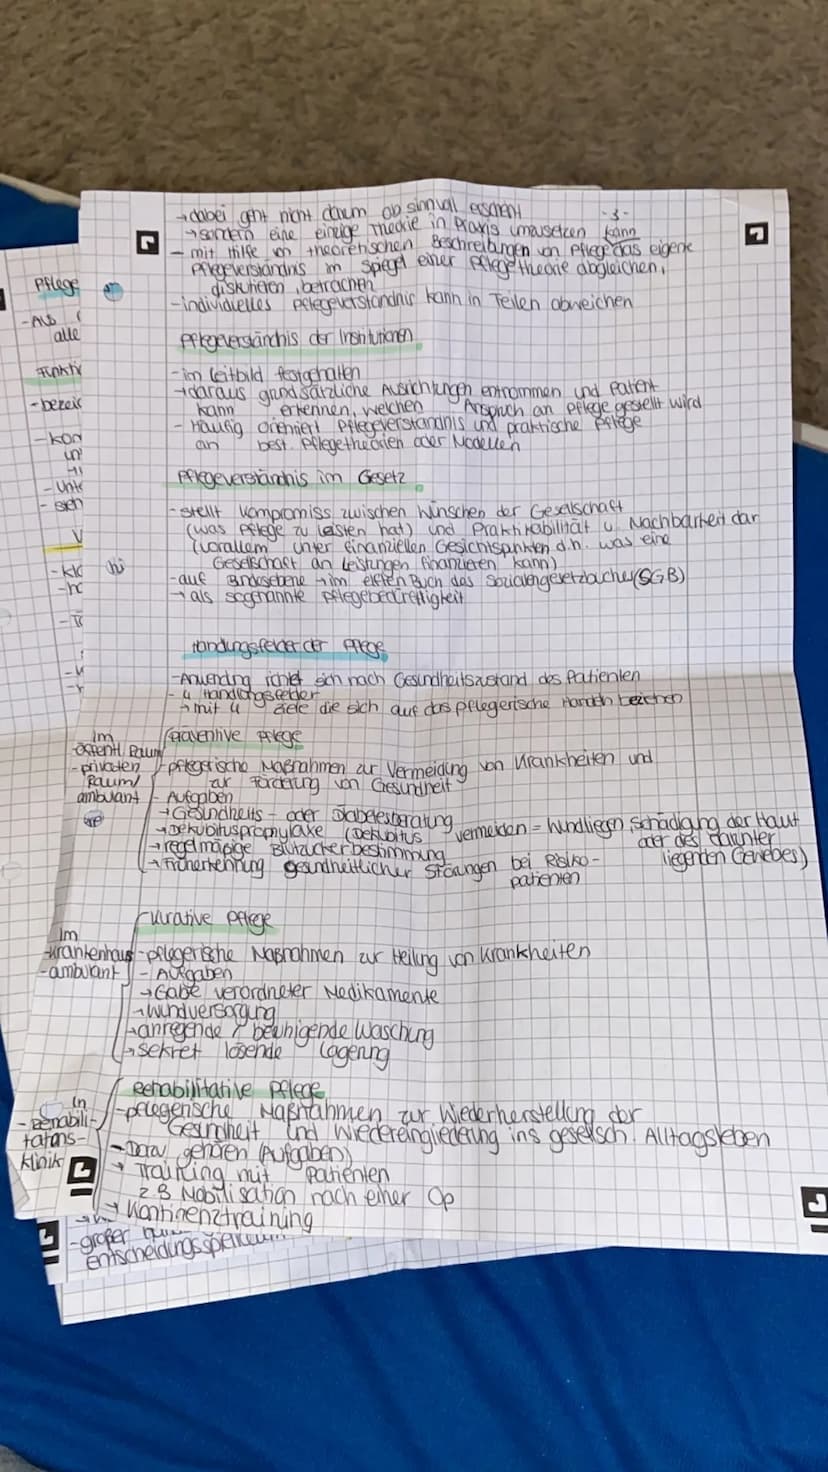 →dabei geht nicht darum ob sinnvoll erscheint
-3-
→sondern eine einzige Theorie in Praxis umzusetzen kann
- mit Hilfe von theoretischen Beschreibungen von Pflege das eigene
Pflegeverständnis im Spiegel einer Pflegetheorie abgleichen,
diskutieren, betrachen
-individuelles Pflegeverständnis kann in Teilen abweichen
Pflegeverständnis der Institutionen
-im Leitbild festgehalten
→daraus grundsätzliche Ausrichtungen entnommen und Patient
kann erkennen, welchen Anspruch an Pflege gestellt wird
- Häufig orientiert Pflegeverständnis und praktische Pflege
an best. Pflegetheorien oder Modellen
Pflegeverständnis im Gesetz
-stellt Kompromiss zwischen Wünschen der Gesellschaft
(was Pflege zu leisten hat) und Praktikabilität u. Machbarkeit dar
(vorallem unter finanziellen Gesichtspunkten d.h. was eine
Gesellschaft an Leistungen finanzieren kann)
-auf Bundesebene →im elften Buch das Sozialengesetzbuches (SGB)
→ als sogenannte Pflegebedürftigkeit
Handlungsfelder der Pflege
-Anwendung richtet sich nach Gesundheitszustand des Patienten
- 4 Handlungsfelder
→mit 4 Ziele die sich auf das pflegerische Handeln beziehen
Präventive Pflege
im
-öffentl. Raum
-privaten
Raum/
ambulant
-pflegerische Maßnahmen zur Vermeidung von Krankheiten und
zur Förderung von Gesundheit
- Aufgaben
→Gesundheits- oder Diabetesberatung
→Dekubitusprophylaxe (Dekubitus vermeiden = Wundliegen, Schädigung der Haut
oder des darunter
liegenden Gewebes)
→regelmäßige Blutzuckerbestimmung
→Früherkennung gesundheitlicher Störungen bei Risiko-
patienten
Kurative Pflege
im
-Krankenhaus
-ambulant
-pflegerische Maßnahmen zur Heilung von Krankheiten
- Aufgaben
→Gabe verordneter Medikamente
→Wundversorgung
→anregende / beruhigende Waschung
→Sekret lösende Lagerung
Rehabilitative Pflege
In
-Rehabili-
tations-
klinik
-pflegerische Maßnahmen zur Wiederherstellung der
Gesundheit und Wiedereingliederung ins gesellsch. Alltagsleben
-Dazu gehören (Aufgaben)
→ Training mit Patienten
z B Mobilisation nach einer Op
→ Kontinenztraining
Pflege
-Als
alle
Funkti
-bezeic
-kon
un
-unte
-sich
-großer
entscheidungsspielraum